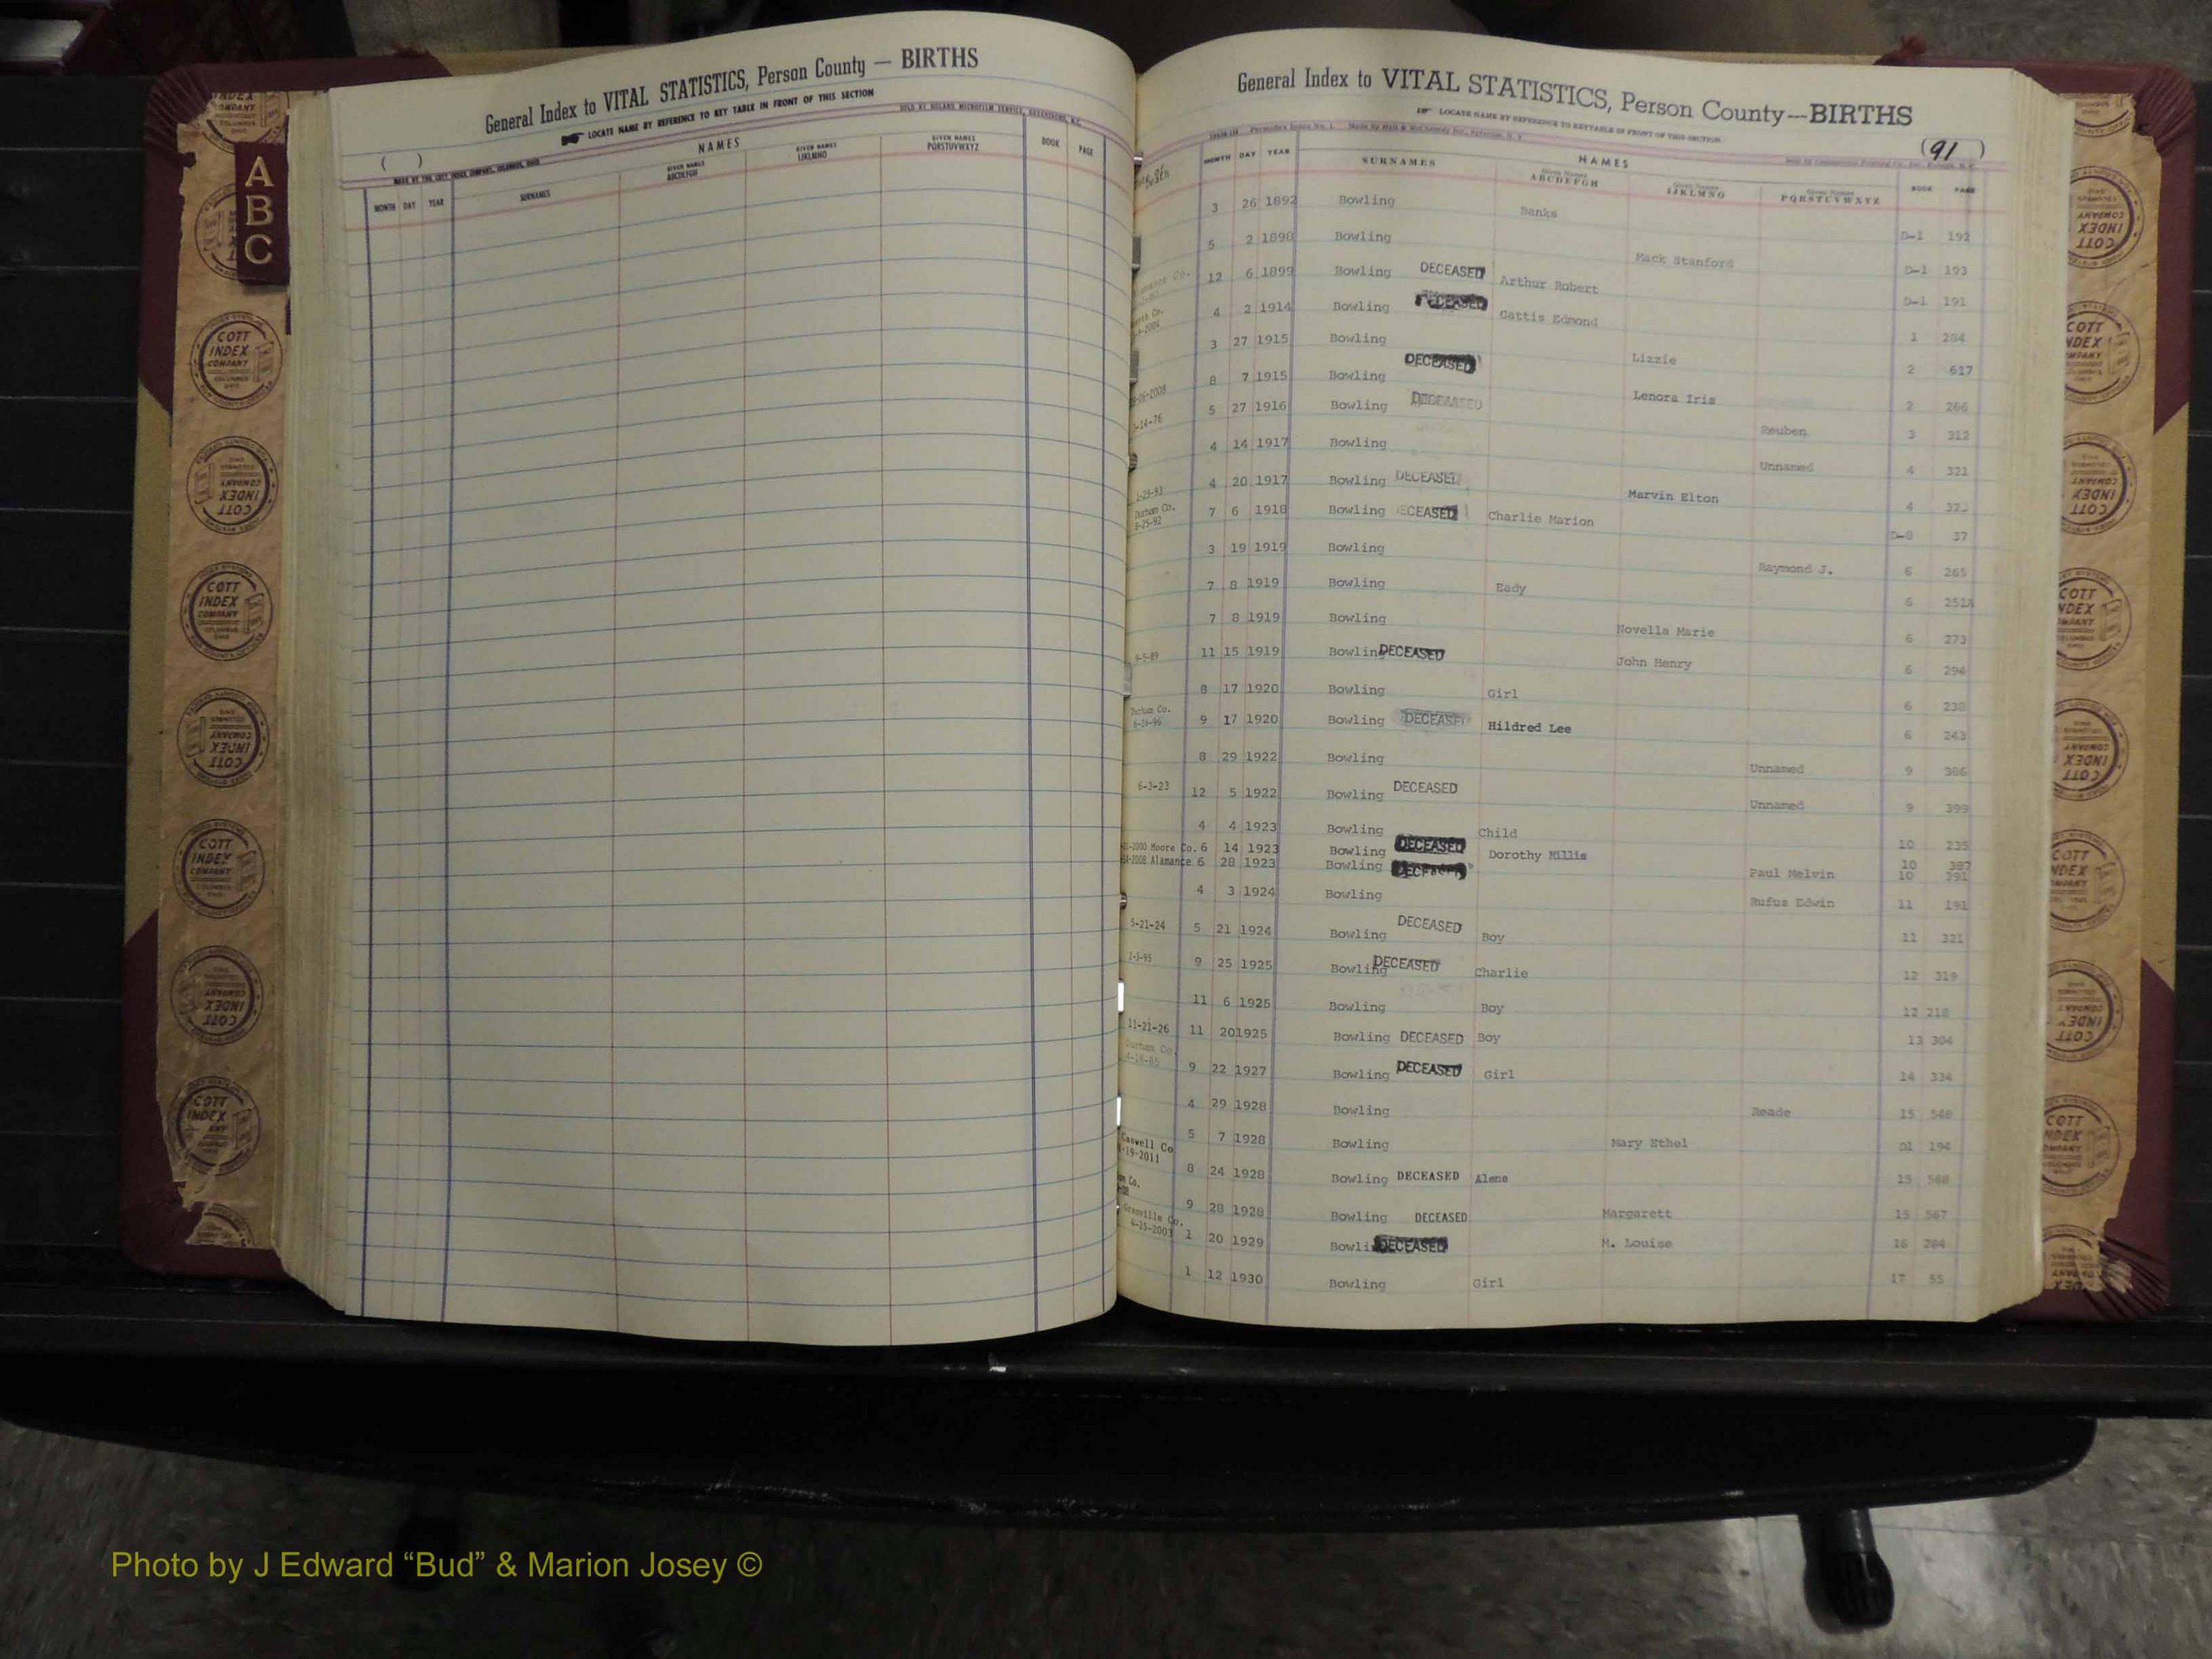 General Index to VITAL STATISTICS, Person County — BIRTHS
LOCATE NAME BY REFERENCE TO KEY TABLE IN FRONT OF THIS SECTION
( )
MADE BY THE COTT INDEX COMPANY, COLUMBUS, OHIO
NAMES
MONTH DAY YEAR SURNAMES GIVEN NAMES ABCDEFGH GIVEN NAMES IJKLMNO GIVEN NAMES PQRSTUVWXYZ BOOK PAGE
A
B
C
COTT INDEX COMPANY COLUMBUS OHIO
General Index to VITAL STATISTICS, Person County—BIRTHS
LOCATE NAME BY REFERENCE TO KEY TABLE IN FRONT OF THIS SECTION
(91)
NAMES
MONTH DAY YEAR SURNAMES Given Names ABCDEFGH Given Names IJKLMNO Given Names PQRSTUVWXYZ BOOK PAGE
3 26 1892 Bowling Banks D-1 192
5 2 1898 Bowling Mack Stanford D-1 193
12 6 1899 Bowling DECEASED Arthur Robert D-1 191
4 2 1914 Bowling DECEASED Gattis Edmond 1 284
3 27 1915 Bowling Lizzie 2 617
8 7 1915 Bowling DECEASED Lenora Iris 2 266
5 27 1916 Bowling DECEASED Reuben 3 312
4 14 1917 Bowling Unnamed 4 321
1-29-93 4 20 1917 Bowling DECEASED Marvin Elton 4
Durham Co. 8-25-92 7 6 1918 Bowling DECEASED Charlie Marion D-8 37
3 19 1919 Bowling Raymond J. 6 265
7 8 1919 Bowling Eady 6 251A
7 8 1919 Bowling Novella Marie 6 273
9-5-89 11 15 1919 Bowling DECEASED John Henry 6 294
8 17 1920 Bowling Girl 6 238
Durham Co. 6-16-96 9 17 1920 Bowling DECEASED Hildred Lee 6 243
8 29 1922 Bowling Unnamed 9 386
6-3-23 12 5 1922 Bowling DECEASED Unnamed 9 399
4 4 1923 Bowling Child 10 235
-2000 Moore Co. 6 14 1923 Bowling DECEASED Dorothy Millie 10 387
-2008 Alamance 6 28 1923 Bowling DECEASED Paul Melvin 10 391
4 3 1924 Bowling Rufus Edwin 11 191
5-21-24 5 21 1924 Bowling DECEASED Boy 11 321
2-3-95 9 25 1925 Bowling DECEASED Charlie 12 319
11 6 1925 Bowling Boy 12 218
11-21-26 11 20 1925 Bowling DECEASED Boy 13 304
Durham Co. 9 22 1927 Bowling DECEASED Girl 14 334
4 29 1928 Bowling Reade 15 548
5 7 1928 Bowling Mary Ethel D1 194
Caswell Co -19-2011 8 24 1928 Bowling DECEASED Alene 15 568
Co. 9 28 1928 Bowling DECEASED Margarett 15 567
Granville Co. 4-25-2003 1 20 1929 Bowling DECEASED M. Louise 16 284
1 12 1930 Bowling Girl 17 55
Photo by J Edward “Bud” & Marion Josey ©